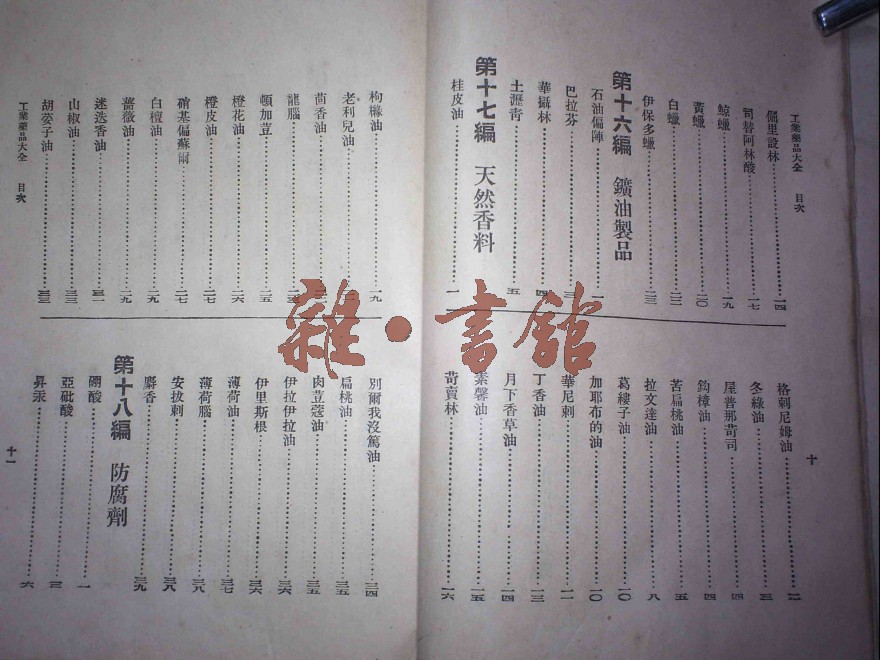 工業藥品大全　目次
儞里設林……一四
司替阿林酸……一七
鯨蠟……一九
黃蠟……二〇
白蠟……二二
伊保多蠟……二三
第十六編　鑛油製品
石油偏陣……一
巴拉芬
華攝林……四
土瀝青……五
第十七編　天然香料
桂皮油……一
格刺尼姆油……二
冬綠油……三
屋普那苛司……四
鈎樟油……四
苦扁桃油……五
拉文達油……八
葛縷子油……一〇
加耶布的油……一〇
華尼刺……一一
丁香油……一三
月下香草油……一四
素馨油……一五
苛賣林……一六
十
枸櫞油……一九
老利兒油
茴香油
龍腦
頓加荳……二五
橙花油……二六
橙皮油……二七
硝基偏蘇爾……二七
白檀油……二九
薔薇油……二九
迷迭香油……三一
山椒油……三三
胡荽子油……三三
工業藥品大全　目次
別爾我沒篤油……三四
扁桃油……三五
肉荳蔻油……三五
伊拉伊拉油……三六
伊里斯根……三六
薄荷油……三七
薄荷腦……三八
安拔刺……三八
麝香……三九
第十八編　防腐劑
硼酸……一
亞砒酸……三
昇汞……六
十一
雜·書館